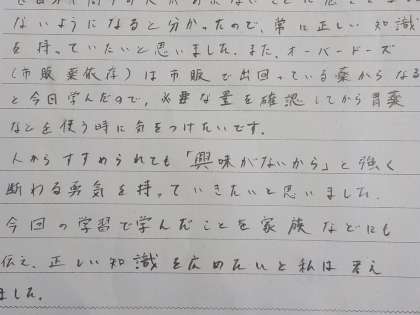 ないようになると分かったので、常に正しい知識
を持っていたいと思いました。また、オーバードーズ
(市販薬依存)は市販で出回っている薬からなる
と今日学んだので、必要な量を確認してから胃薬
などを使う時に気をつけたいです。
人からすすめられても「興味がないから」と強く
断わる勇気を持っていきたいと思いました。
今回の学習で学んだことを家族などにも
伝え、正しい知識を広めたいと私は考え
ました。